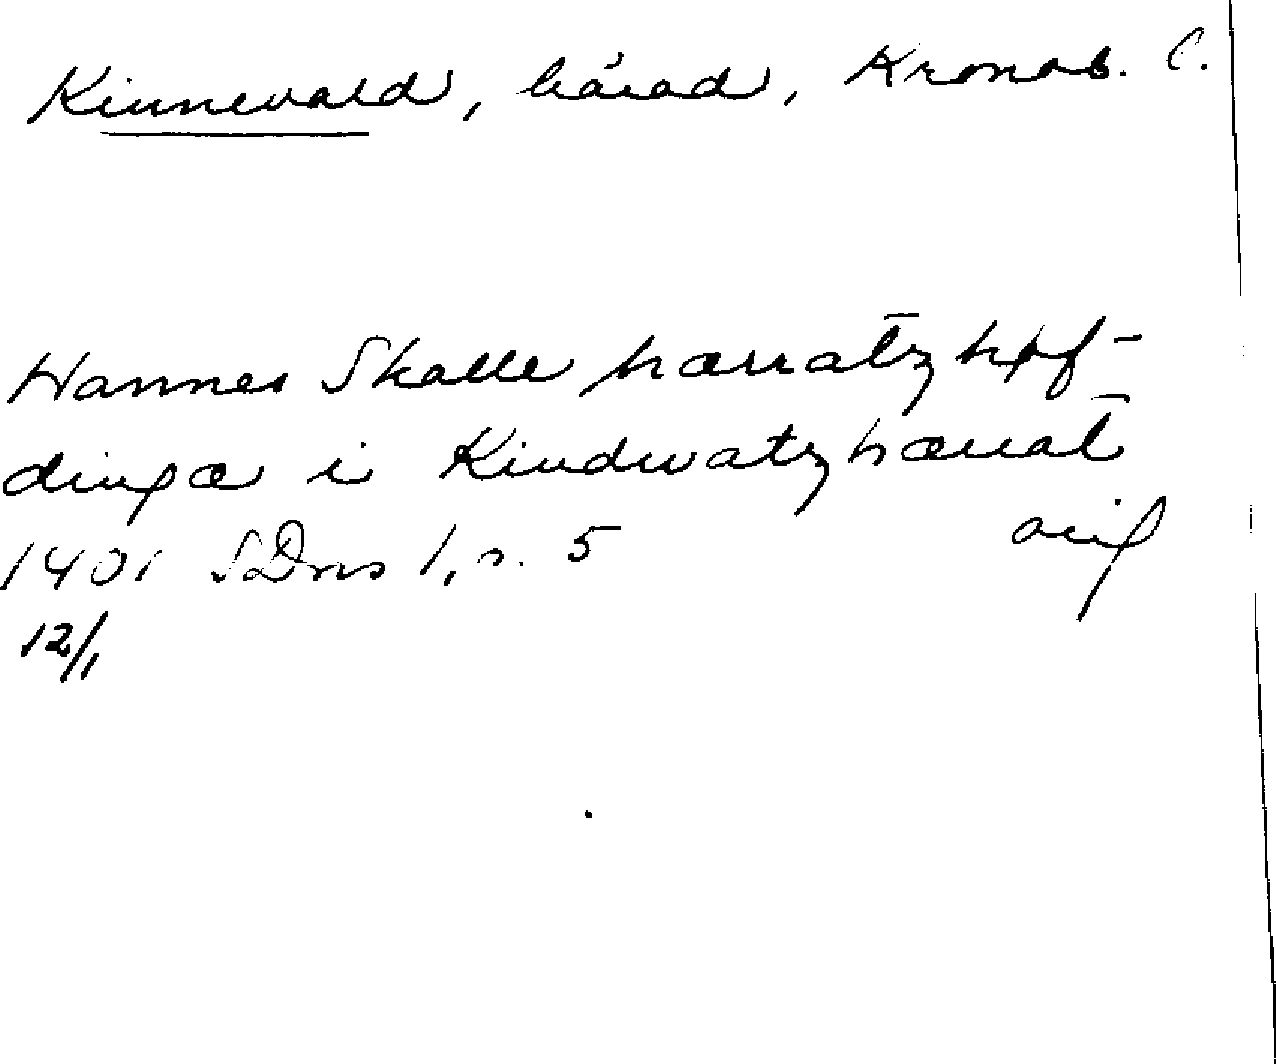 Kinnevald, härad, Kronob. l.
Hannes Skalle hærratz høf-
dinga i Kindwatz hærat
1401 SDns 1, s. 5 orig
12/1